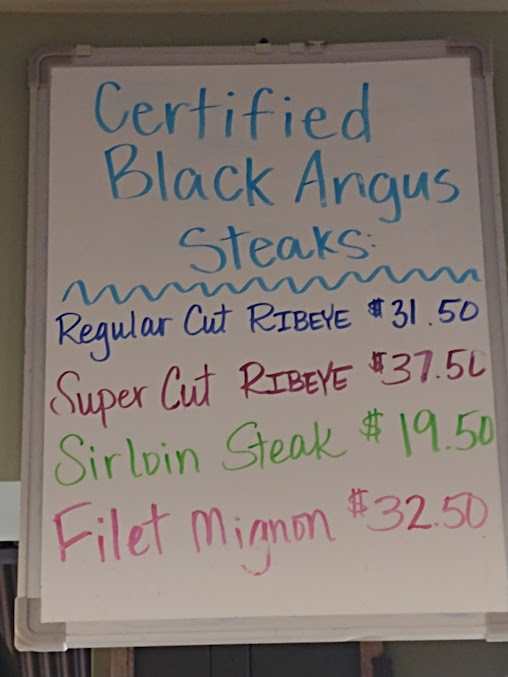 Certified
Black Angus
Steaks:
Regular Cut RIBEYE $31.50
Super Cut RIBEYE $37.50
Sirloin Steak $19.50
Filet Mignon $32.50